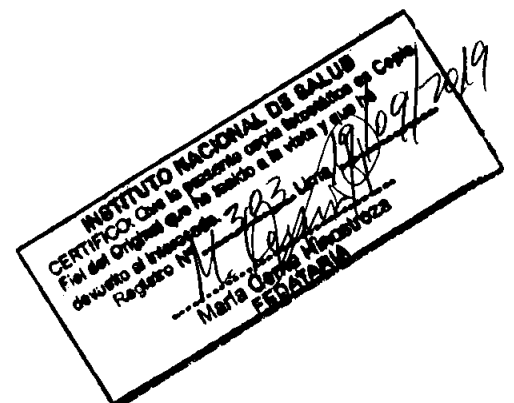 INSTITUTO NACIONAL DE SALUD
CERTIFICO: Que la presente copia fotostática es Copia
Fiel del Original que he tenido a la vista y que he
devuelto al interesado.
Registro Nº 383 Lima, 19/09/2019
María
FEDATARIA